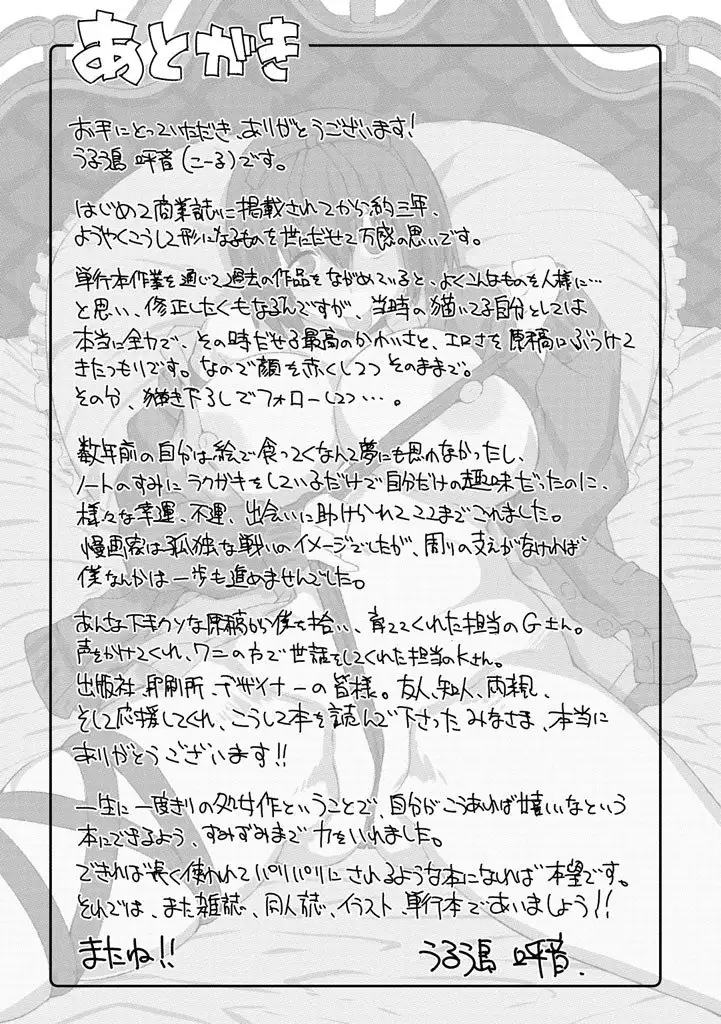 あとがき
お手にとっていただき、ありがとうございます!
うるう島呼音(こーる)です。
はじめて商業誌に掲載されてから約三年、
ようやくこうして形になるものを世にだせて万感の思いです。
単行本作業を通じて過去の作品をながめていると、よくこんなものを人様に…
と思い、修正したくもなるんですが、当時の描いてる自分としては
本当に全力で、その時だせる最高のかわいさと、エロさを原稿にぶつけて
きたつもりです。なので顔を赤くしつつそのままで。
その分、描き下ろしでフォローしつつ…。
数年前の自分は絵で食ってくなんて夢にも思わなかったし、
ノートのすみにラクガキをしているだけで自分だけの趣味だったのに、
様々な幸運、不運、出会いに助けられてここまでこれました。
漫画家は孤独な戦いのイメージでしたが、周りの支えがなければ
僕なんかは一歩も進めませんでした。
あんな下手クソな原稿から僕を拾い、育ててくれた担当のGさん。
声をかけてくれ、ワニの方で世話をしてくれた担当のKさん。
出版社、印刷所、デザイナーの皆様。友人、知人、両親、
そして応援してくれ、こうして本を読んで下さったみなさま、本当に
ありがとうございます!!
一生に一度きりの処女作ということで、自分がこうあれば嬉しいなという
本にできるよう、すみずみまで力をいれました。
できれば長く使われてパリパリにされるような本になれば本望です。
それでは、また雑誌、同人誌、イラスト、単行本であいましょう!!
またね!!
うるう島呼音.